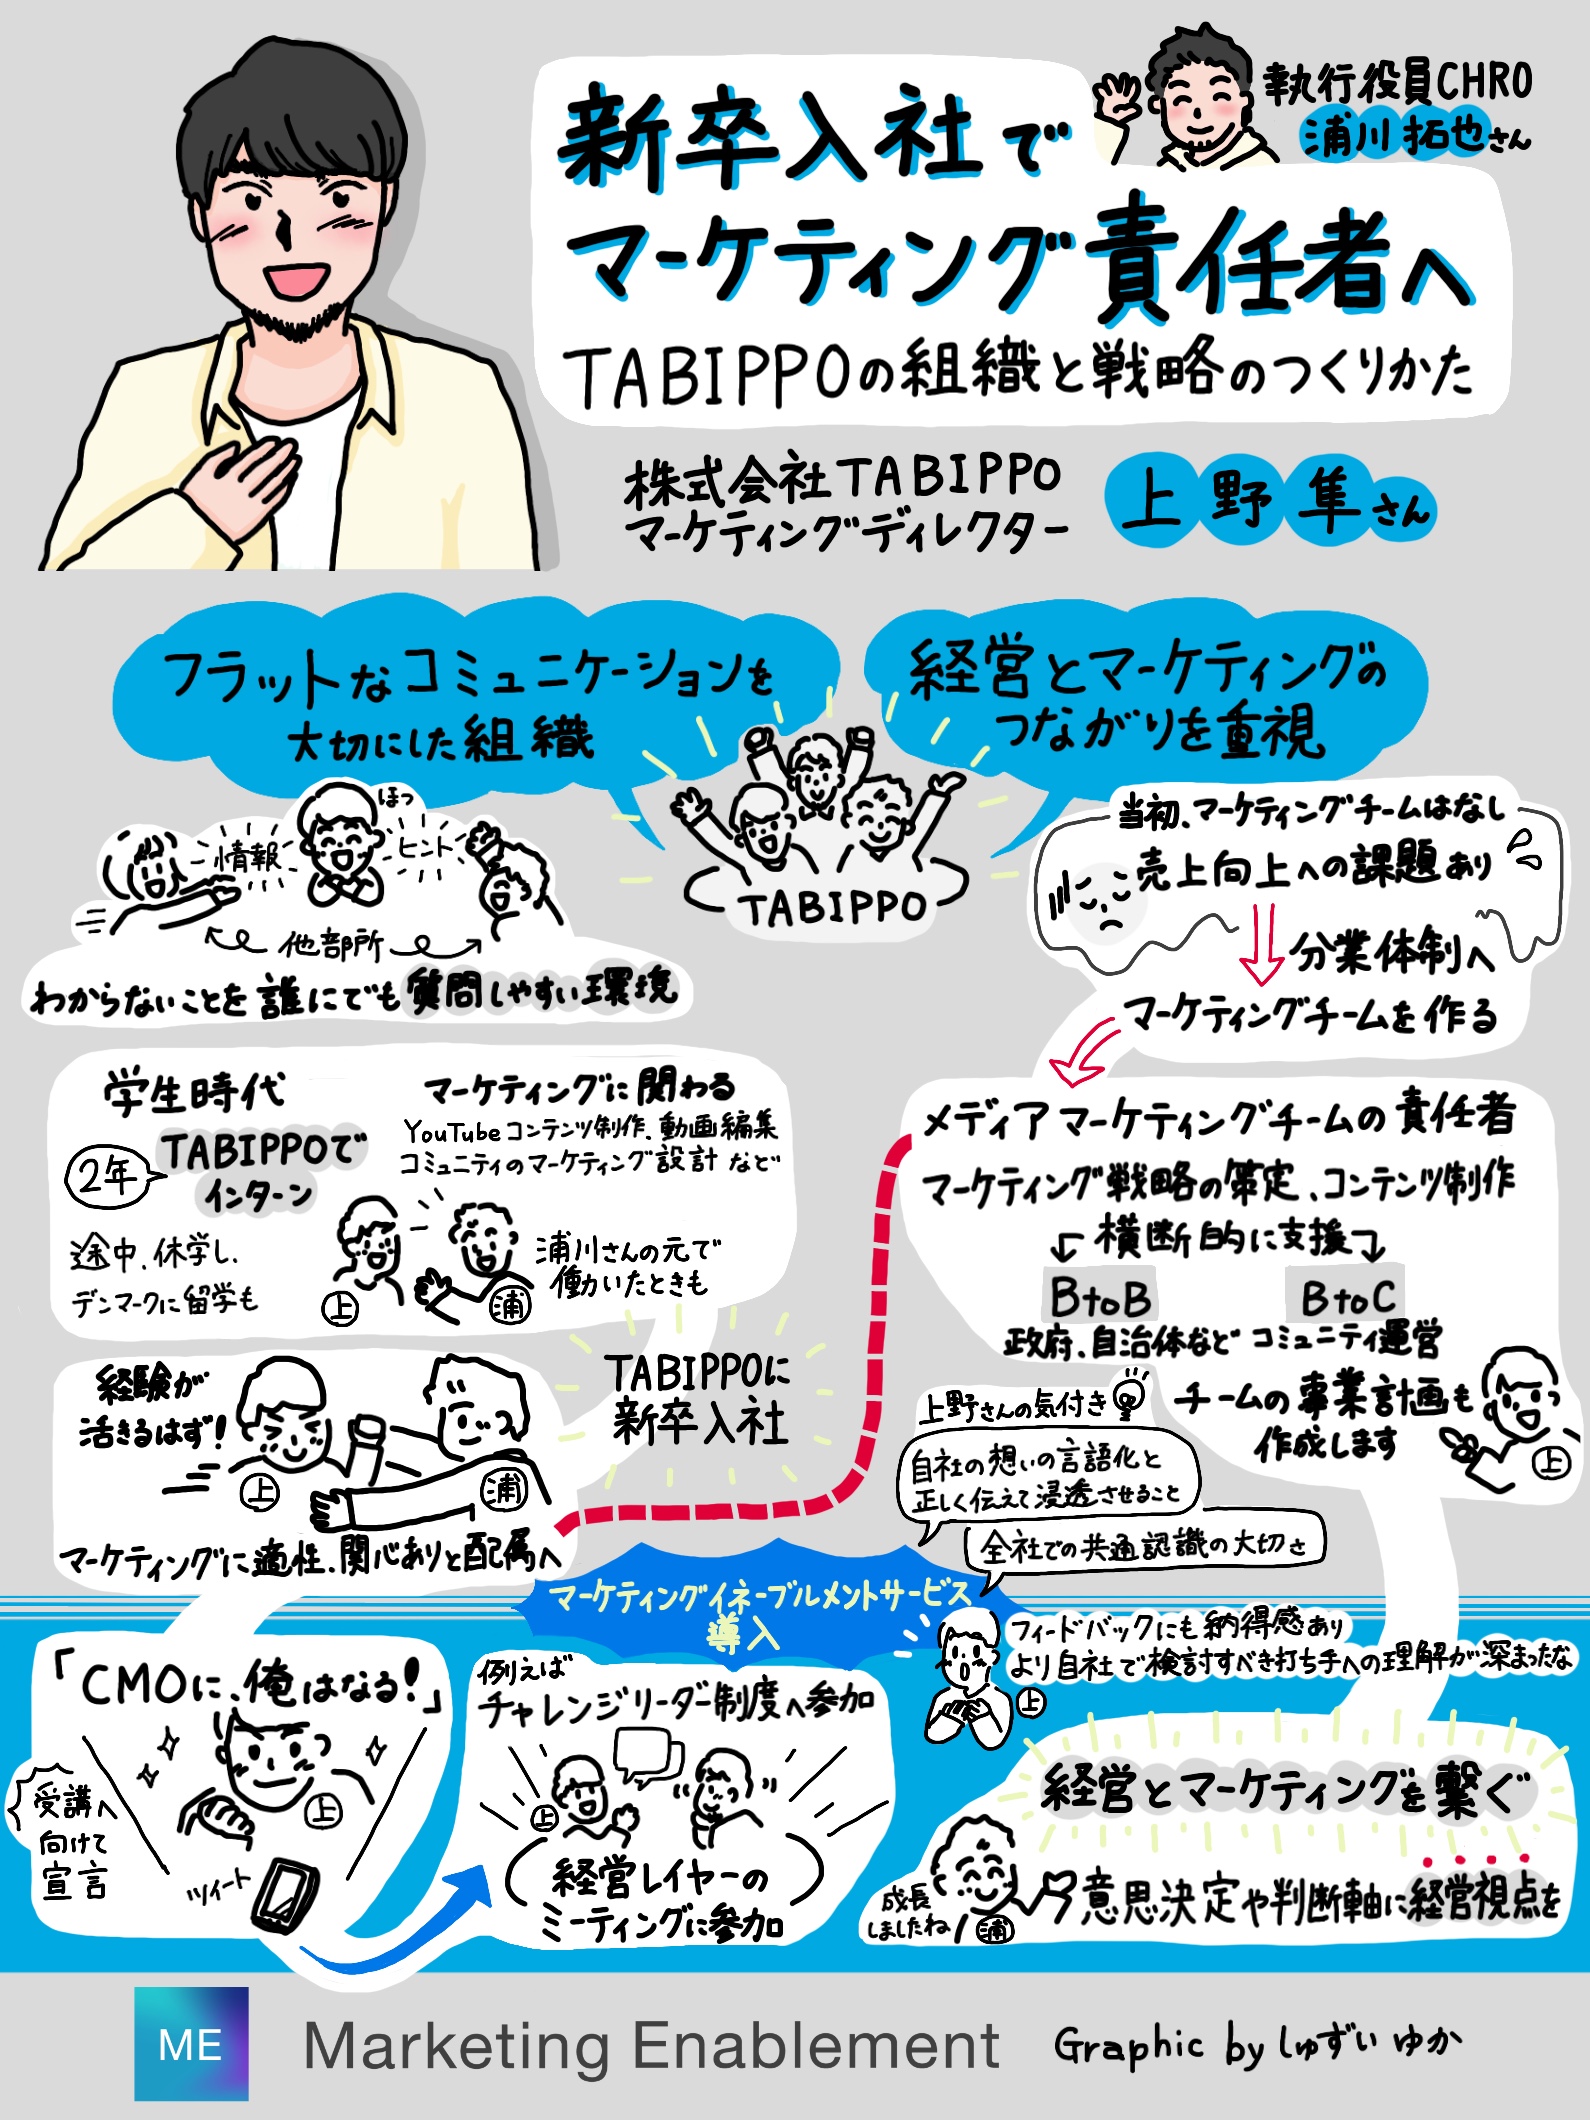 新卒入社で
マーケティング責任者へ
TABIPPOの組織と戦略のつくりかた
執行役員CHRO
浦川拓也さん
株式会社TABIPPO
マーケティングディレクター
上野隼さん
フラットなコミュニケーションを
大切にした組織
経営とマーケティングの
つながりを重視
TABIPPO
ほっ
情報
ヒント
他部所
わからないことを誰にでも質問しやすい環境
当初、マーケティングチームはなし
売上向上への課題あり
分業体制へ
マーケティングチームを作る
学生時代
2年
TABIPPOで
インターン
途中、休学し、
デンマークに留学も
マーケティングに関わる
YouTubeコンテンツ制作、動画編集
コミュニティのマーケティング設計など
上
浦
浦川さんの元で
働いたときも
TABIPPOに
新卒入社
経験が
活きるはず!
上
浦
マーケティングに適性、関心ありと配属へ
メディアマーケティングチームの責任者
マーケティング戦略の策定、コンテンツ制作
横断的に支援
BtoB
政府、自治体など
BtoC
コミュニティ運営
チームの事業計画も
作成します
上
上野さんの気付き
自社の想いの言語化と
正しく伝えて浸透させること
全社での共通認識の大切さ
マーケティングイネーブルメントサービス
導入
フィードバックにも納得感あり
より自社で検討すべき打ち手への理解が深まったな
上
「CMOに、俺はなる!」
受講へ
向けて
宣言
上
ツイート
例えば
チャレンジリーダー制度へ参加
上
経営レイヤーの
ミーティングに参加
経営とマーケティングを繋ぐ
意思決定や判断軸に経営視点を
成長
しましたね
浦
ME
Marketing Enablement
Graphic by しゅずい ゆか